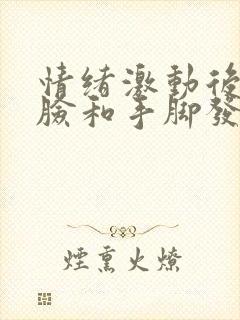 情绪激動後
臉和手脚發
煙熏火燎